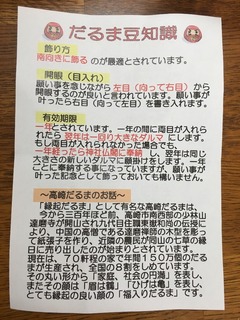 だるま豆知識
飾り方
南向きに飾る のが最適とされています。
開眼（目入れ）
願い事を念じながら 左目（向って右目） から
開眼するのが良いと言われています。願い事が
叶ったら右目（向って左目）を書き入れます。
有効期限
一年とされています。一年の間に両目が入れられ
たら 翌年は一回り大きなダルマ にします。
もし両目が入れられなかった場合でも、
一年経ったら神社仏閣に奉納 し、翌年は同じ
大きさの新しいダルマに願掛けをします。ことご
とに奉納する事になっていますが、願い事が
叶った記念として飾っておいても構いません。
～高崎だるまのお話～
「縁起だるま」として有名な高崎だるまは、
今から三百年ほど前、高崎市南西部の少林山
達磨寺が開山され九代目住職東嶽和尚の伝授に
より、中国の高僧である達磨禅師の木型を彫っ
て紙張子を作り、近隣の農民が同山の七草の縁
日に売り出したのが始まりとされています。
現在は、70軒程の家で年間150万個のだる
まが生産され、全国の8割をしめています。
その丸い形から「家庭、社会の円満」を表し、
またその顔は「眉は鶴」「ひげは亀」を表し、
とても縁起の良い顔の「福入りだるま」です。